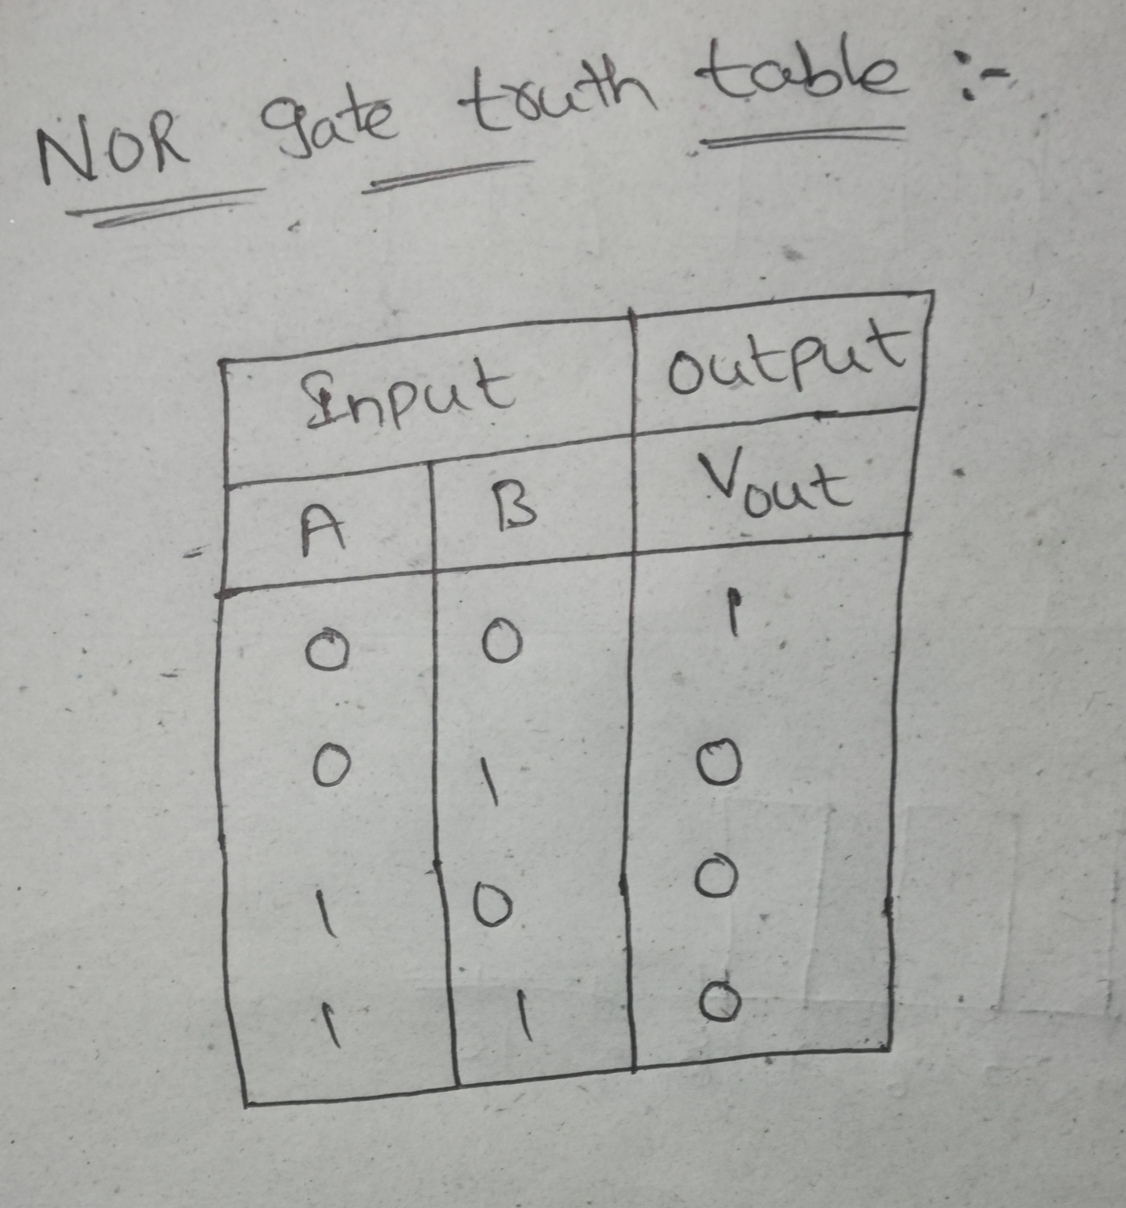 NOR gate truth table :-
Input output
A B Vout
0 0 1
0 1 0
1 0 0
1 1 0